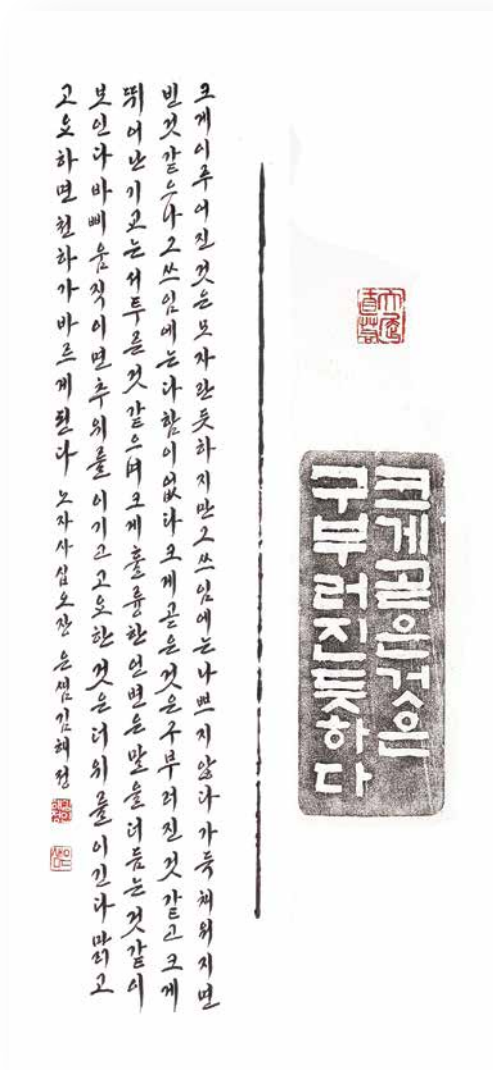 크게곧은것은
구부러진듯하다
크게이루어진것은모자란듯하지만그쓰임에는나쁘지않다가득채워지면
빈것같으나그쓰임에는다함이없다크게곧은것은구부러진것같고크게
뛰어난기교는서투른것같으며크게훌륭한언변은말을더듬는것같이
보인다바삐움직이면추위를이기고고요한것은더위를이긴다맑고
고요하면천하가바르게된다 노자사십오장 은샘김혜정